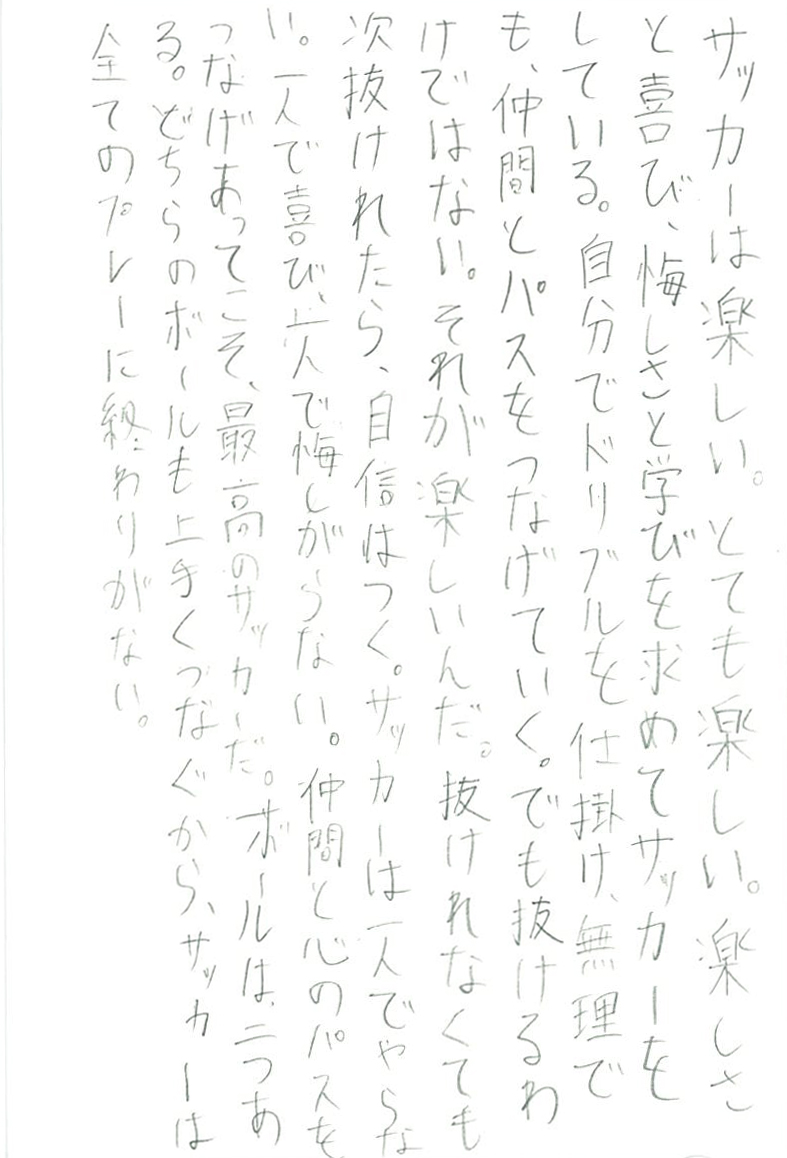 サッカーは楽しい。とても楽しい。楽しさ
と喜び、悔しさと学びを求めてサッカーを
している。自分でドリブルを仕掛け、無理で
も、仲間とパスをつなげていく。でも抜けるわ
けではない。それが楽しいんだ。抜けれなくても
次抜けれたら、自信はつく。サッカーは一人でやらな
い。一人で喜び、一人で悔しがらない。仲間と心のパスを
つなげあってこそ、最高のサッカーだ。ボールは、二つあ
る。どちらのボールも上手くつなぐから、サッカーは
全てのプレーに終わりがない。